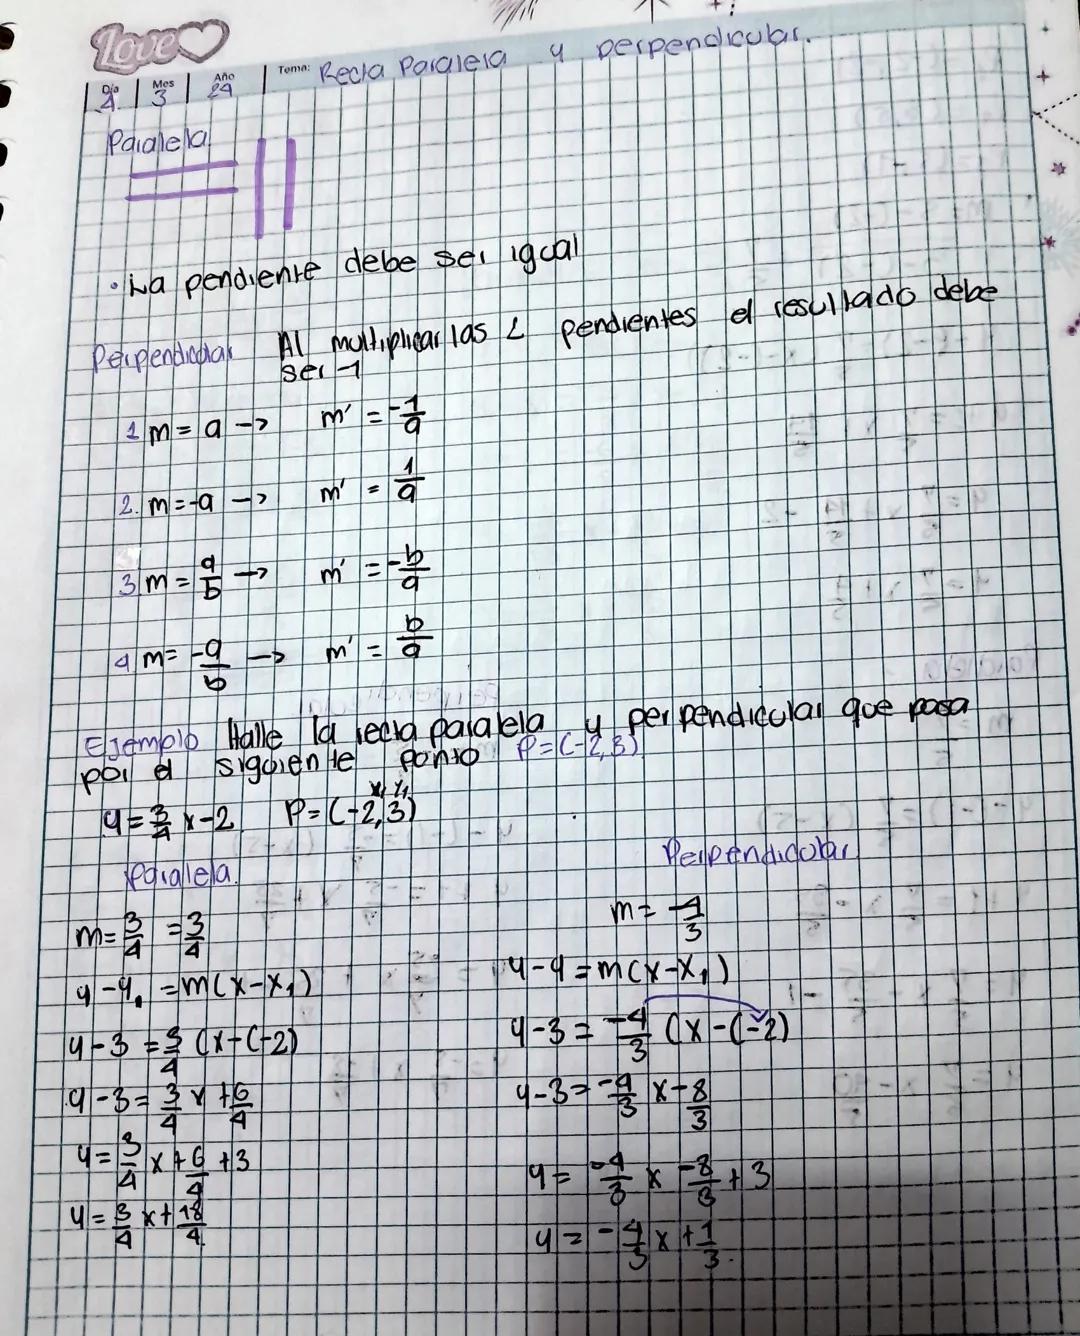 Love
Día Mes Año Tema: Recta Paralela y perpendicular.
4 3 24
Paralela.
• La pendiente debe ser igual
Perpendicular Al multiplicar las 2 pendientes el resultado debe
ser -1
1 m = a -> m' = -1/a
2. m = -a -> m' = 1/a
3 m = a/b -> m' = -b/a
4 m = -a/b -> m' = b/a
Ejemplo Halle la recta paralela y perpendicular que pasa
por el siguiente punto P=(-2,3)
x1 y1
y = 3/4 x - 2 P = (-2,3)
Paralela.
m = 3/4 = 3/4
y - y1 = m(x - x1)
y - 3 = 3/4 (x - (-2)
y - 3 = 3/4 x + 6/4
y = 3/4 x + 6/4 + 3
y = 3/4 x + 18/4
Perpendicular
m = -4/3
y - y = m(x - x1)
y - 3 = -4/3 (x - (-2)
y - 3 = -4/3 x - 8/3
y = -4/3 x - 8/3 + 3
y = -4/3 x + 1/3.